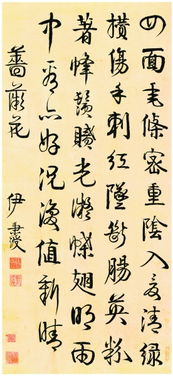 四面垂條密重陰入夏清綠
攢傷手刺紅墜斷腸英粉
著蜂鬚膩光凝蝶翅明雨
中看亦好況復值新晴
薔薇花
伊